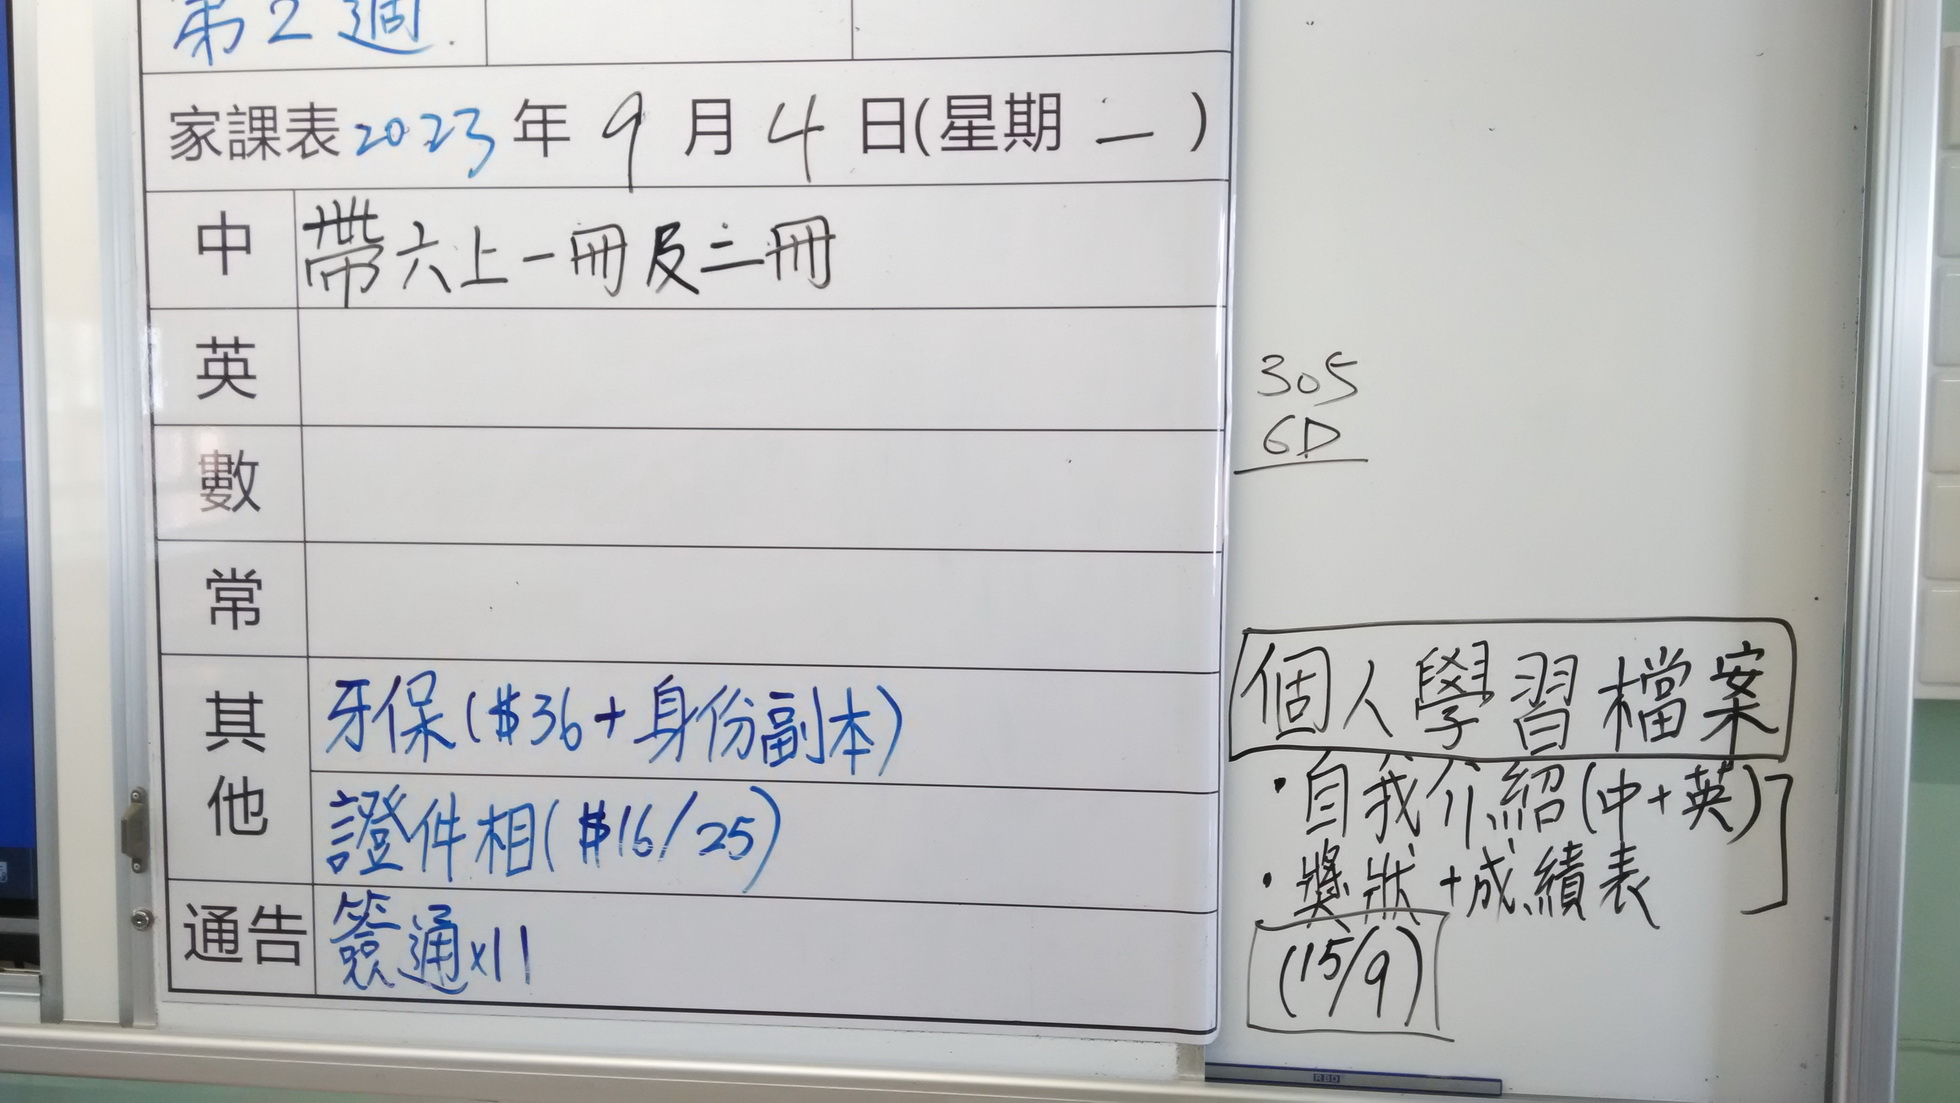 第2週.
家課表2023年9月4日(星期二)
中 帶六上一冊及二冊
英
數
常
其他 牙保($36+身份副本)
證件相($16/25)
通告 簽通x11
305
6D
個人學習檔案
·自我介紹(中+英)
·獎狀+成績表
(15/9)
RBD